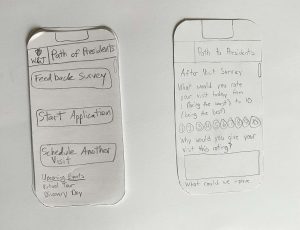 W&J
Path of Presidents
Feedback Survey
Start Application
Schedule Another
Visit
Upcoming Events
Virtual Tour
Discovery Day
Path to Presidents
After Visit Survey
What would you rate
your visit today from
1 (being the worst) to 10
(being the best)
Why would you give your
visit this rating?
What could we improve